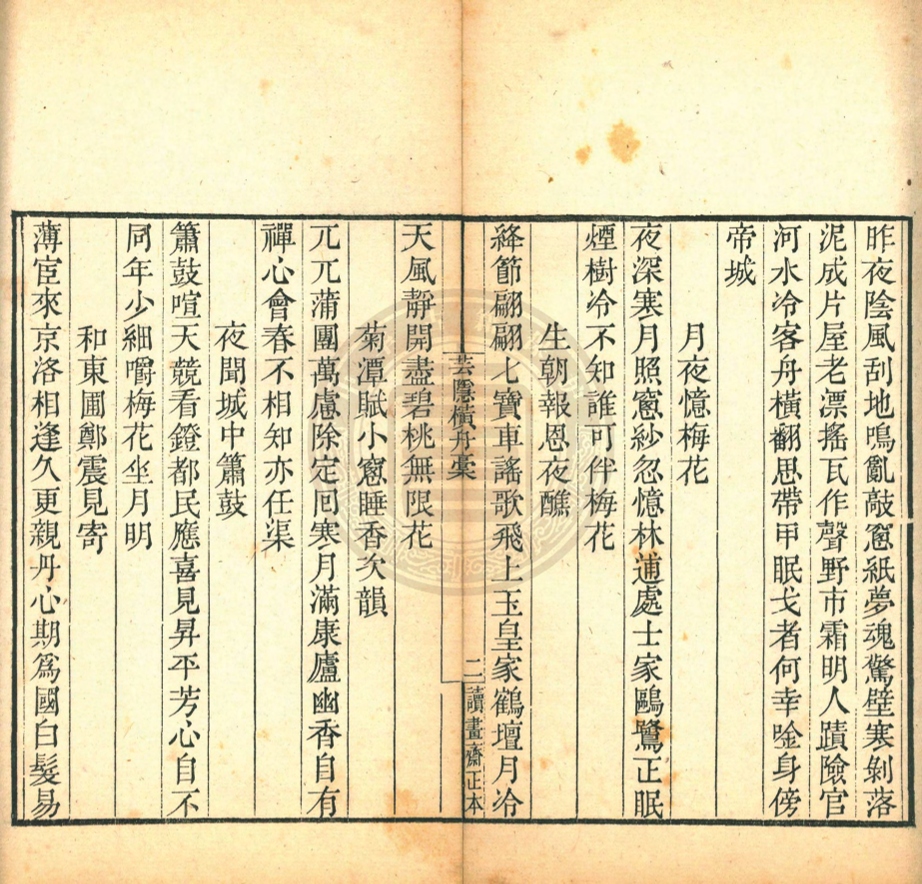 昨夜陰風刮地鳴亂敲窻紙夢魂驚壁寒剝落
泥成片屋老漂搖瓦作聲野市霜明人蹟險官
河水冷客舟橫翻思帶甲眠戈者何幸唫身傍
帝城
月夜憶梅花
夜深寒月照窻紗忽憶林逋處士家鷗鷺正眠
煙樹冷不知誰可伴梅花
生朝報恩夜醮
絳節翩翩七寶車謠歌飛上玉皇家鶴壇月冷
芸隱橫舟槀
二
讀畫齋正本
天風靜開盡碧桃無限花
菊潭賦小窻睡香次韻
兀兀蒲團萬慮除定回寒月滿康廬幽香自有
禪心會春不相知亦任渠
夜聞城中簫鼓
簫鼓喧天競看鐙都民應喜見昇平芳心自不
同年少細嚼梅花坐月明
和東圃鄭震見寄
薄宦來京洛相逢久更親丹心期爲國白髮易